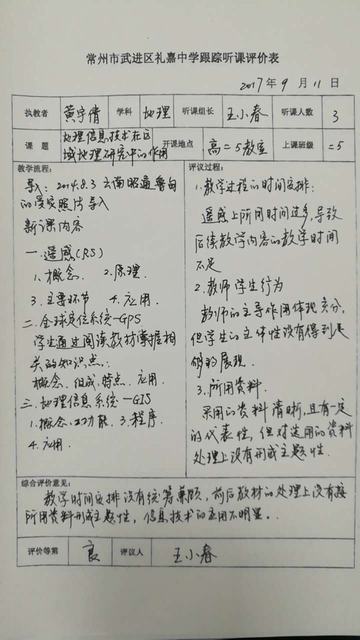 常州市武进区礼嘉中学跟踪听课评价表
2017年9月11日
执教者 黄宇倩 学科 地理 听课组长 王小春 听课人数 3
课题 地理信息技术在区域地理研究中的作用 开课地点 高二5教室 上课班级 二5
教学流程:
导入:2014.8.3云南昭通鲁甸
的灾害照片导入
新课内容
一.遥感(RS)
1.概念. 2.原理.
3.主要环节 4.应用.
二.全球定位系统—GPS
学生通过阅读教材掌握相
关的知识点:
概念.组成.特点.应用.
三.地理信息系统—GIS
1.概念.2功能.3.程序.
4.应用.
评议过程:
1.教学过程的时间安排:
遥感上所用时间过多,导致
后续教学内容的教学时间
不足
2.教师学生行为
教师的主导作用体现充分,
但学生的主体性没有得到足
够的展现.
3.所用资料.
采用的资料清晰,且有一定
的代表性,但对选用的资料
处理上没有形成主题性.
综合评价意见:
教学时间安排没有统筹兼顾,前后教材的处理上没有
所用资料形成主题性,信息技术的应用不明显.
评价等第 良 评价人 王小春